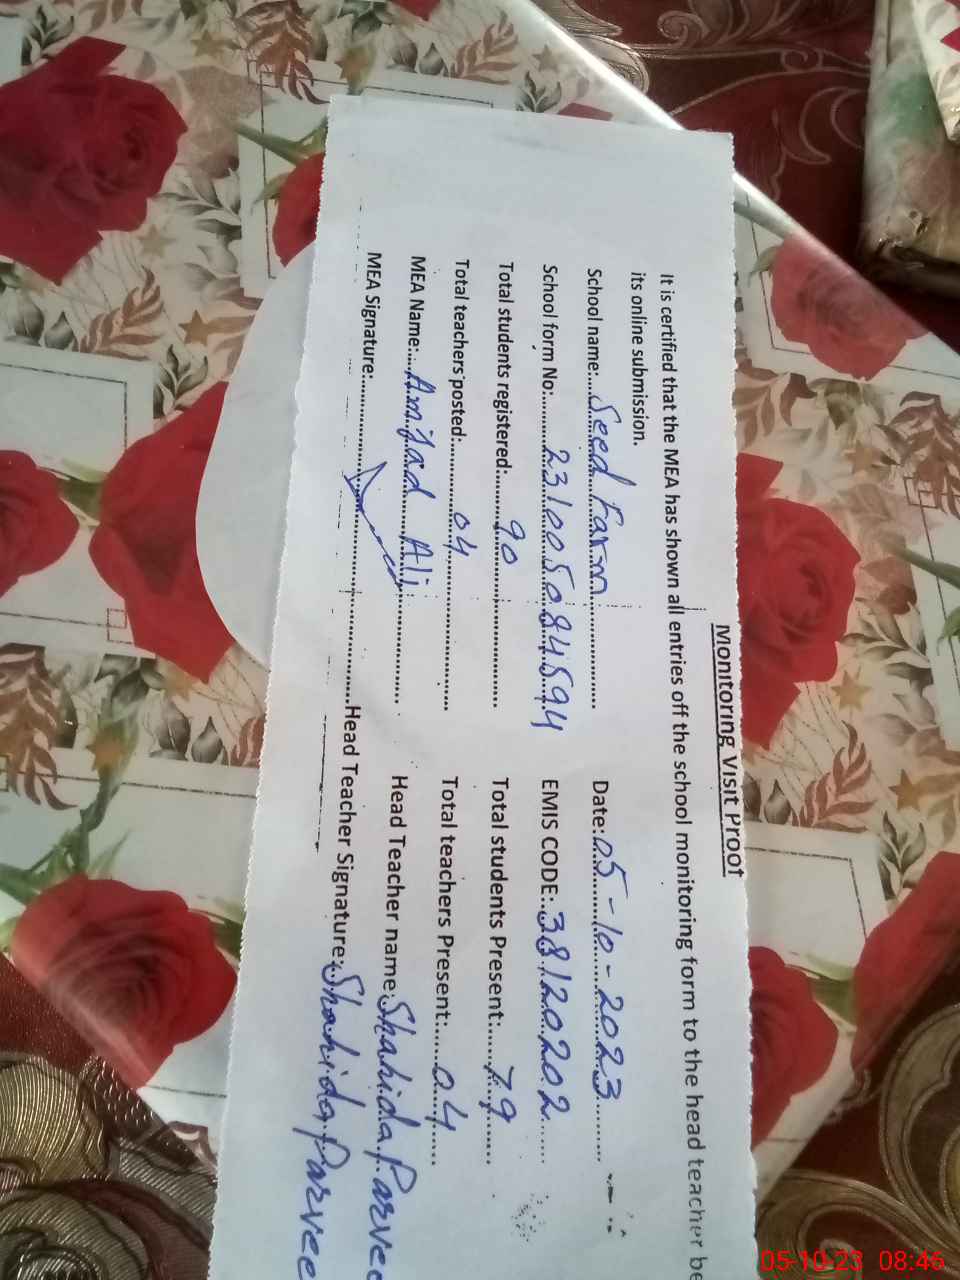 Monitoring Visit Proof
It is certified that the MEA has shown all entries off the school monitoring form to the head teacher be
its online submission.
School name:....Seed Farm.................... Date:05-10-2023..........
School form No:.......231005084594 EMIS CODE:.38120202......
Total students registered:.......90........................ Total students Present:......79.......
Total teachers posted:..............04........................ Total teachers Present:......04......
MEA Name:....Amjad Ali.................... Head Teacher name:Shahida Parvee
MEA Signature:............................................Head Teacher Signature:Shahida Parvee
05-10-23 08:46